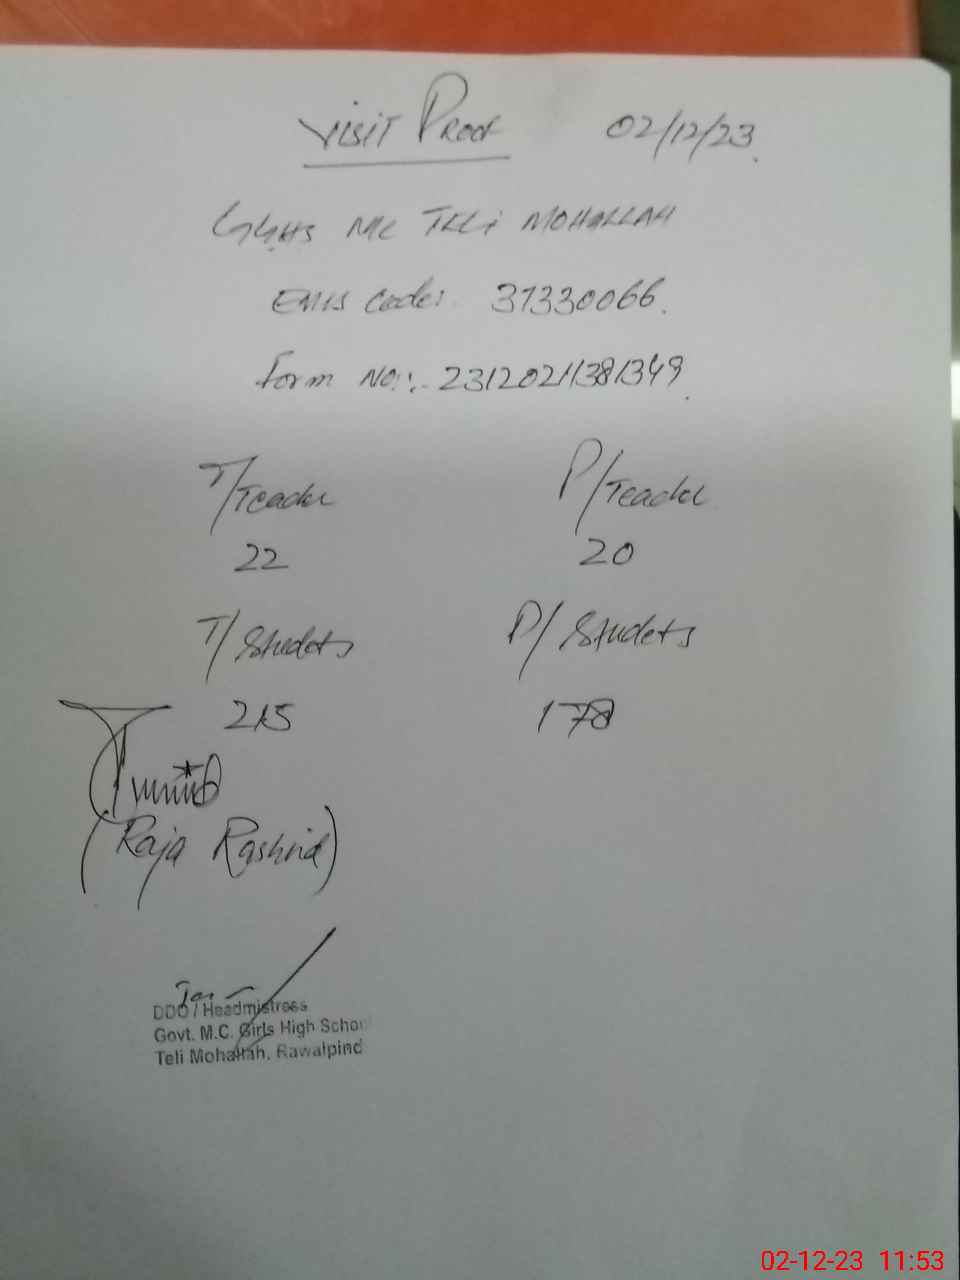 VISIT PROOF 02/12/23
GGHS MC TELI MOHALLAH
EMIS Code: 37330066.
Form NO:. 23120211381349
T/Teacher P/Teacher
22 20
T/Studets P/Studets
215 178
(Raja Rashid)
DDO / Headmistress
Govt. M.C. Girls High School
Teli Mohallah, Rawalpindi
02-12-23 11:53